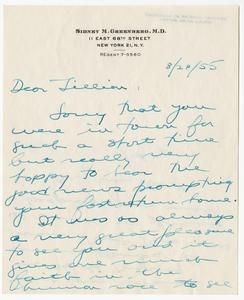 SIDNEY M. GREENBERG, M.D.
11 EAST 68TH STREET
NEW YORK 21, N.Y.
REGENT 7-5580
8/28/55
Dear Lillian:
Sorry that you
were in town for
such a short time
but really very
happy to hear the
good news prompting
your fast return home.
It was as always
a very great pleasure
to see you and it
gives me much
faith in the
human race to see